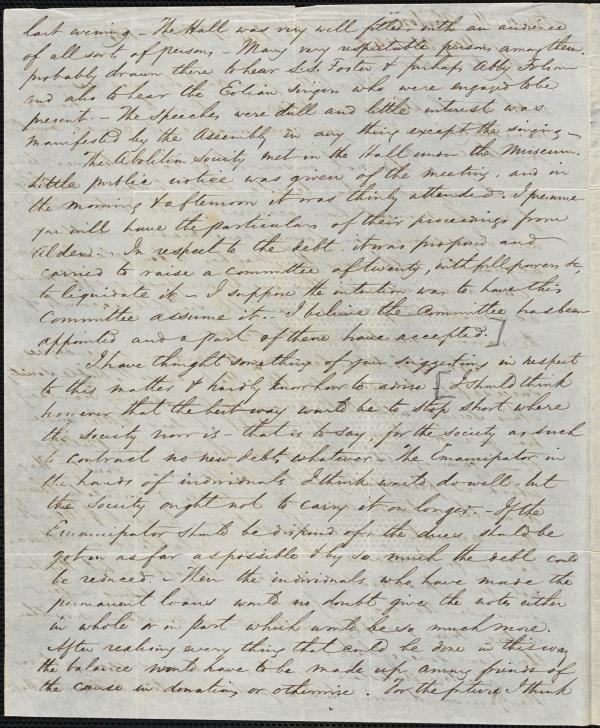 last evening – The Hall was very well filled with an audience
of all sorts of persons – Many very respectable persons among them
probably drawn there to hear S.S. Foster & perhaps Abby Folsom
and also to hear the Eolian singers who were engaged to be
present. – The speeches were dull and little interest was
manifested by the Assembly in any thing except the singing –
The Abolition Society met in the Hall under the Museum.
Little public notice was given of the meeting, and in
the morning & afternoon it was thinly attended. I presume
you will have the particulars of their proceedings from
Alden. In respect to the debt it was proposed and
carried to raise a committee of twenty, with full powers &c,
to liquidate it – I suppose the intention was to have this
Committee assume it. – I believe the Committee has been
appointed and a part of them have accepted.]
I have thought something of your suggestions in respect
to this matter & hardly know how to advise [I should think
however that the best way would be to stop short where
the society now is – that is to say, for the society as such
to contract no new debts whatever – The Emancipator in
the hands of individuals I think would do well, but
the Society ought not to carry it on longer. – If the
Emancipator should be disposed of, the dues should be
got in as far as possible & by so much the debt could
be reduced. – Then the individuals who have made the
permanent loans would no doubt give the notes either
in whole or in part which would be so much more.
After realising every thing that could be done in this way
the balance would have to be made up among friends of
the cause in donations or otherwise. For the future I think